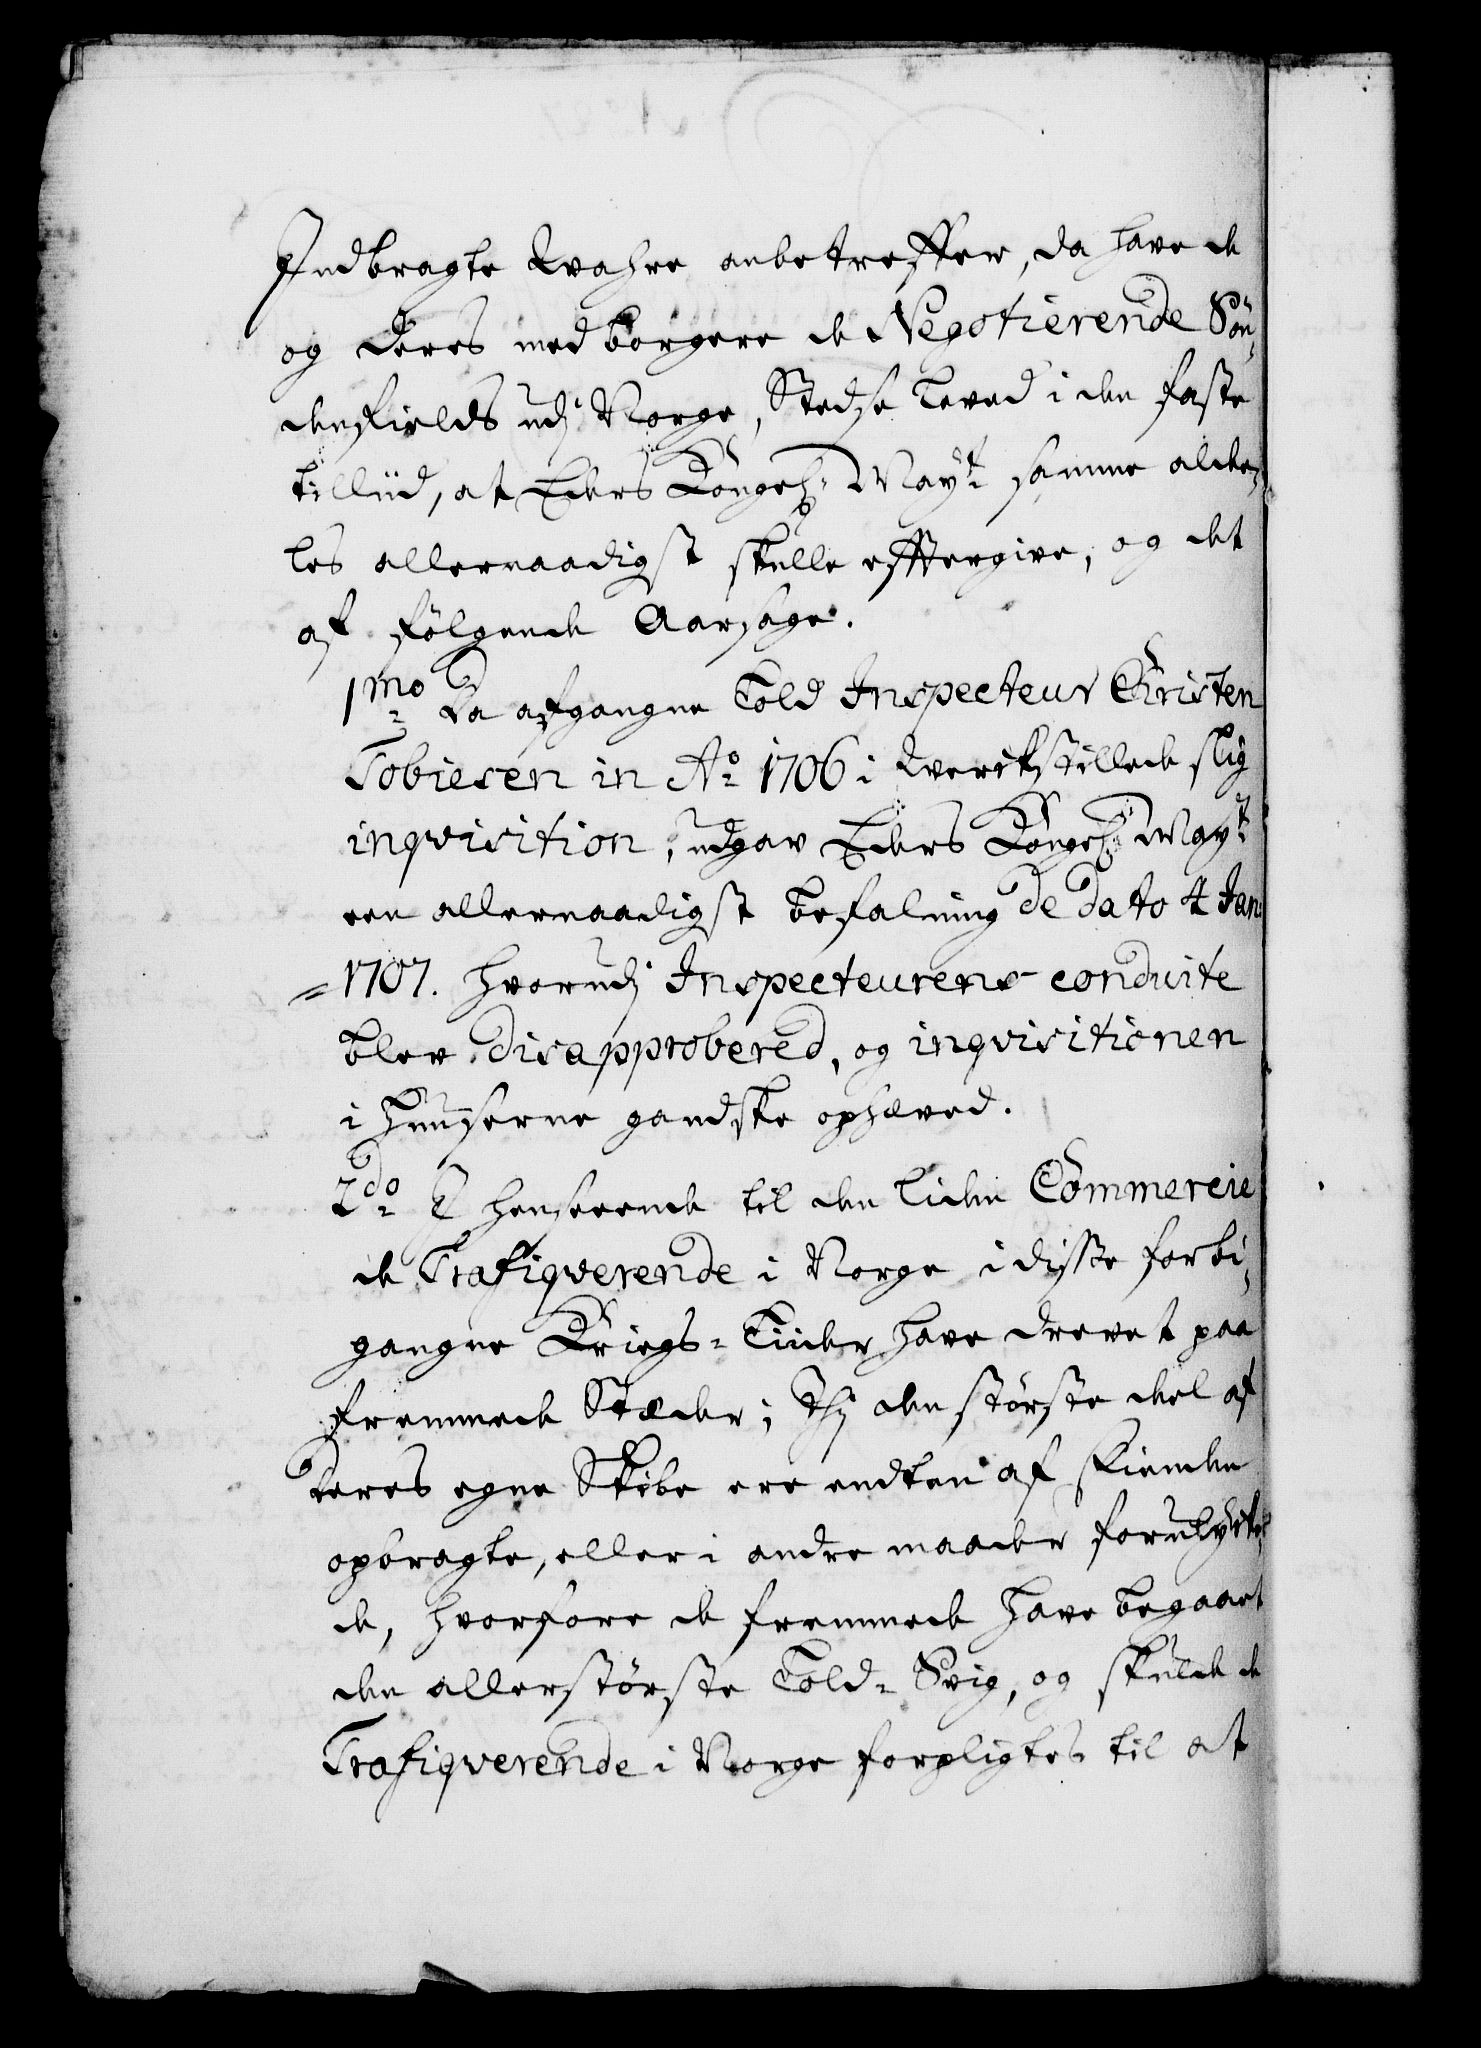 Indbragte Wahre anbetreffer, da have de
og deres med borgere de Negotierende Sön¬
denfields udj Norge, Stedse leved i den faste
tilliid, at Eders Kongel: Mayt: samme aldee¬
les allernaadigst skulle efftergive, og det
af følgende Aarsage.
1mo: Da afgangne Told Inspecteur Christen
Tobiesen in Ao: 1706 i Werckstillede slig
inqvisition, udgav Eders Kongel: Mayt:
een allernaadigst befalning de dato 4 Jan:
1707. hvorudj Inspecteurens conduite
blev disapprobered, og inqvisitionen
i Huuserne gandske ophæved.
2do: I henseende til den liden Commercie
de Trafiqverende i Norge i disse forbi¬
gangne Kriegs-Tiider have drevet paa
fremmede Stæder; Thj den største deel af
deres egne Skibe ere endten af fienden
opbragte, eller i andre maader forulyke¬
de, hvorfore de fremmede have begaaet
den allerstørste Told-Svig, og skulde de
Trafiqverende i Norge forpligtes til at